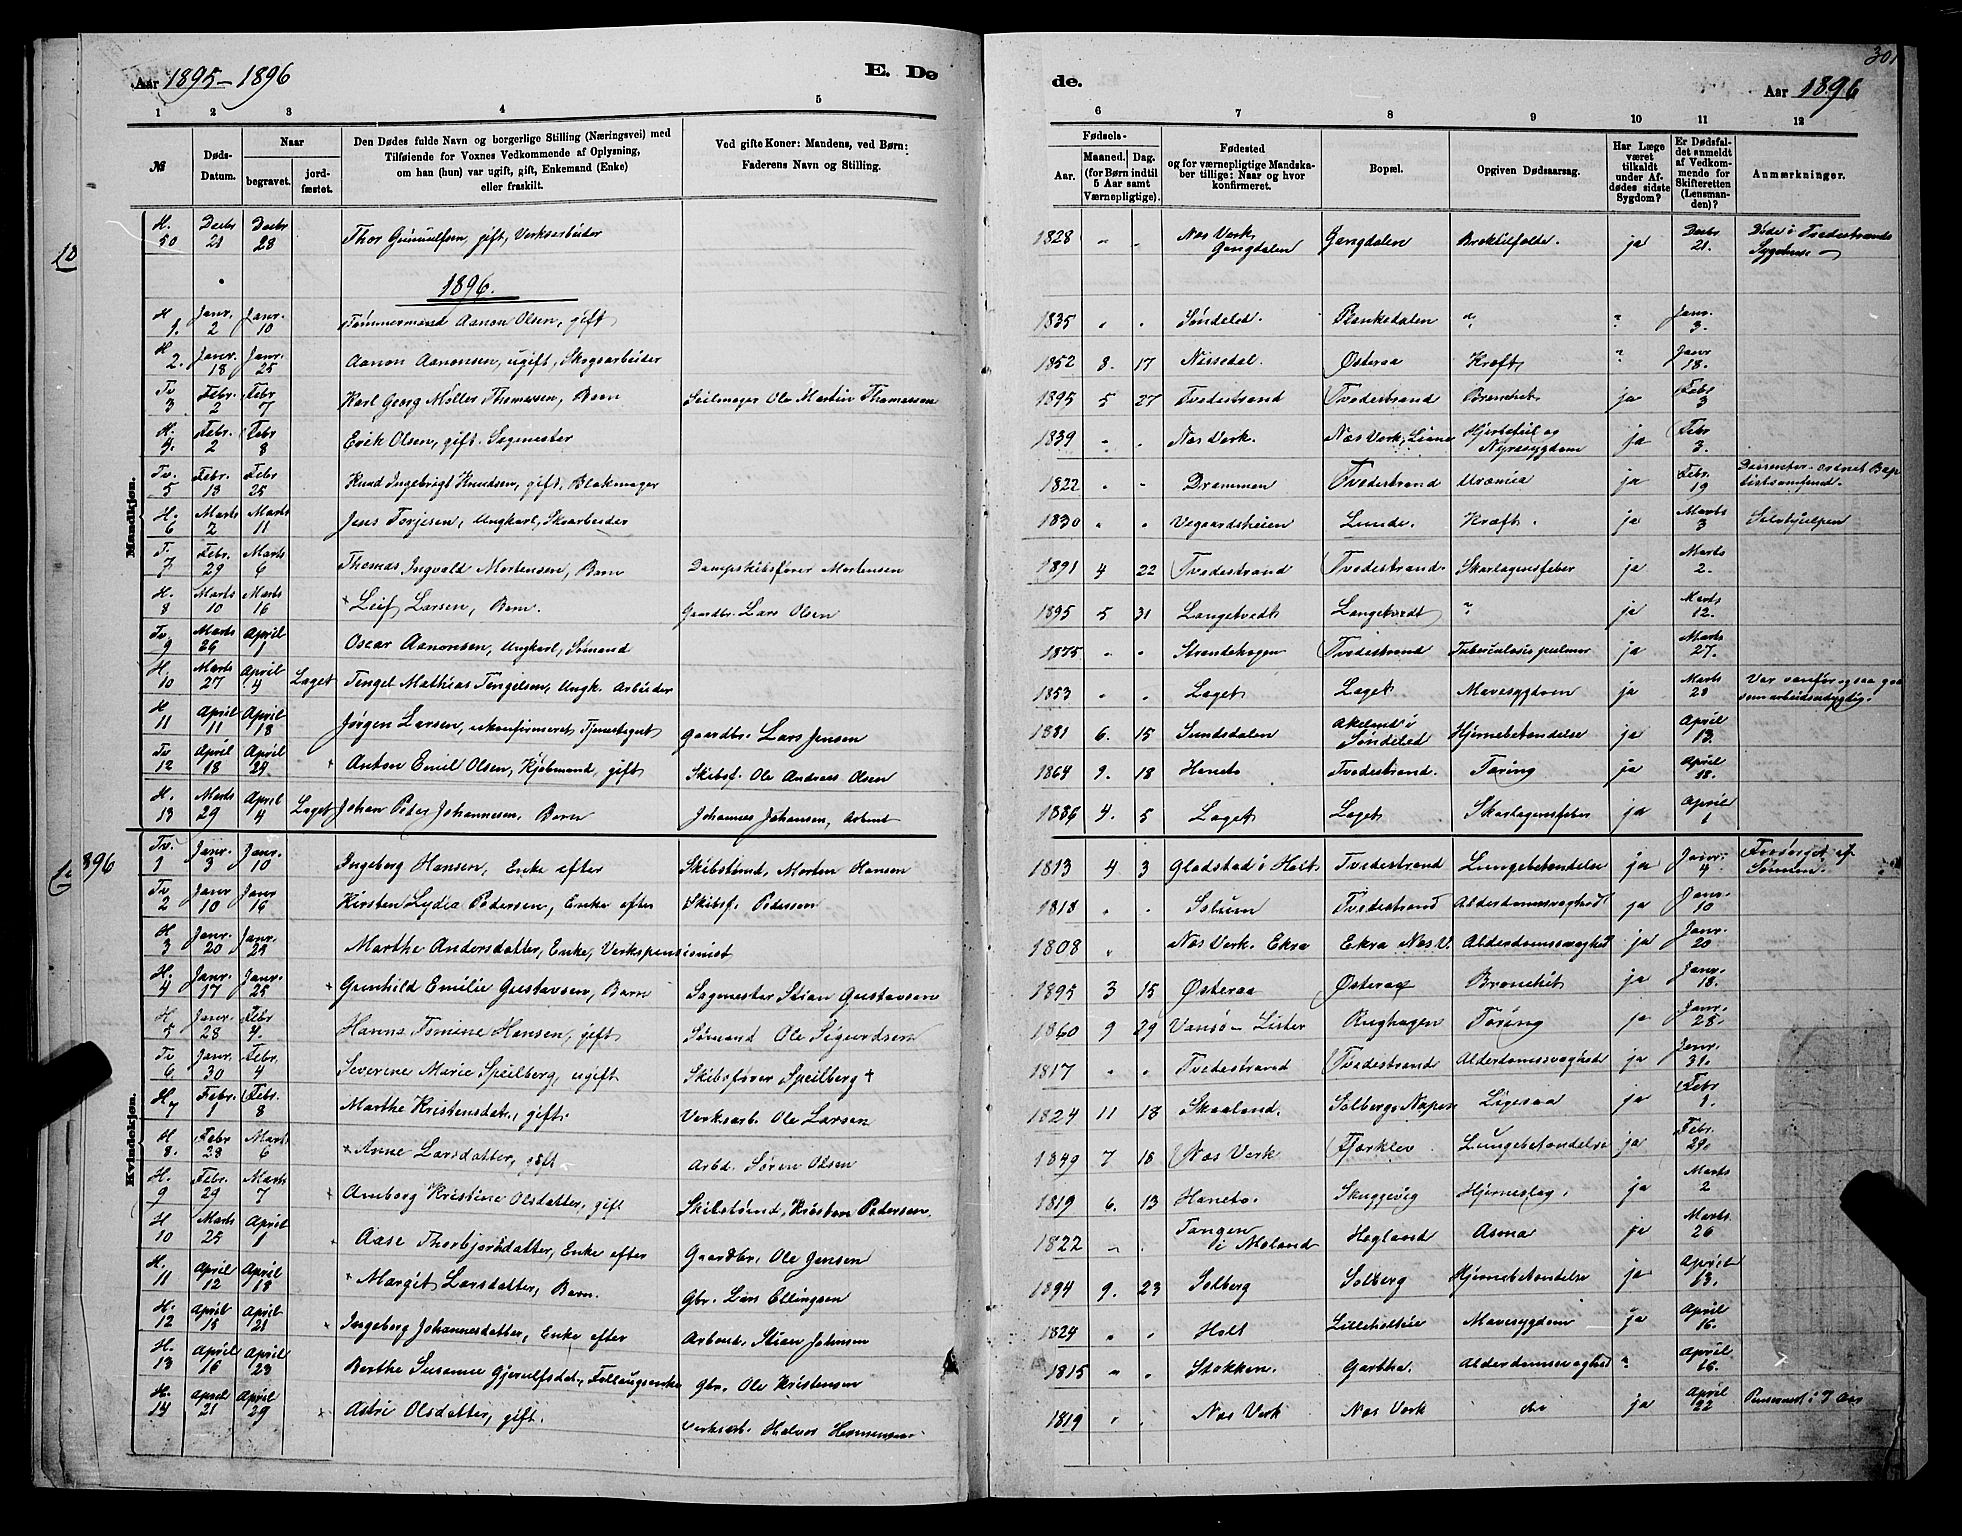 Aar 1895-1896 E. Dø
de. Aar 1896
301
1 2 3 4 5
6 7 8 9 10 11 12
№ Døds-Datum. Naar begravet. jord-fæstet. Den Dødes fulde Navn og borgerlige Stilling (Næringsvei) med Tilføiende for Voxnes Vedkommende af Oplysning, om han (hun) var ugift, gift, Enkemand (Enke) eller fraskilt. Ved gifte Koner: Mandens, ved Børn: Faderens Navn og Stilling.
Fødsels- Aar. Maaned. Dag. (for Børn indtil 5 Aar samt Værnepligtige). Fødested og for værnepligtige Mandskaber tillige: Naar og hvor konfirmeret. Bopæl. Opgiven Dødsaarsag. Har Læge været tilkaldt under Afdødes sidste Sygdom? Er Dødsfaldet anmeldt af Vedkommende for Skifteretten (Lensmanden)? Anmærkninger.
Mandkjøn.
H. 50 Decbr 21 Decbr 28 Thor Gunnulfsen, gift, Verksarbeider 1828 " " Næs Verk, Gangdalen Gangdalen Broktilfælde. ja Decbr 21. Døde i Tvedestrands Sygehuse
1896.
H 1. Janr. 2 Janr. 10 Tømmermand Aanon Olsen, gift 1835 " " Søndeled. Planksdalen " " Janr. 3.
H 2. Janr. 18 Janr. 25 Aanon Aanonsen, ugift, Skogsarbeider 1852 8. 17 Nissedal. Østeraa Kræft " Janr 18.
Tv 3 Febr. 2 Febr 7 Karl Georg Møller Thomassen, Barn Seilmager Ole Martin Thomassen 1895 5 27 Tvedestrand Tvedestrand Bronchit ja Febr 3
H. 4. Febr. 2 Febr 8 Erik Olsen, gift. Sagmester 1839 " " Næs Verk. Næs Verk, Liane Hjertefeil og Nyresygdom ja Febr 3.
Tv. 5 Febr. 13 Febr 25 Knud Ingebrigt Knudsen, gift, Blokmager 1822 " " Drammen Tvedestrand Uræmia ja Febr. 19 Dissenter-ordnet Baptistsamfund.
H. 6 Marts 2 Marts 11 Jens Torjesen, Ungkarl, Skoarbeider 1830 " " Vegaardsheien Lunde. Kræft. ja Marts 3 Selvhjulpen
T. 7 Febr. 29 Marts 6 Thomas Ingvald Mortensen, Barn Dampskibsfører Mortensen 1891 4 22 Tvedestrand Tvedestrand. Skarlagensfeber ja Marts 2.
H. 8 Marts 10 Marts 16 Leif Larsen, Barn. Gaardbr. Lars Olsen 1895 5 31 Langetvedt Langetvedt " ja Marts 12.
Tv 9 Marts 26 April 1 Oscar Aanonsen, Ungkarl, Sømand 1875 " " Strandehagen Tvedestrand Tuberculosis pulmor ja Marts 27.
H. 10 Marts 27 April 4 Laget Tengel Mathias Tengelsen, Ungk. Arbeider 1853 " " Laget Laget Mavesygdom ja Marts 28 Var vanfør ogsaa
H 11 April 11 April 18 Jørgen Larsen, ukonfirmeret Tjenestegut Gaardbr. Lars Jensen 1881 6. 15 Sundsdalen Akeland i Søndeled Hjernebetændelse ja April 13.
Tv 12 April 18 April 24 Anton Emil Olsen, Kjøbmand, gift Skibsf. Ole Andreas Olsen 1864 9. 18 Hanetø Tvedestrand. Tæring ja April 18.
H. 13 Marts 29 April 4 Laget Johan Peder Johannesen, Barn Johannes Johansen, Arbmd 1886 4. 5 Laget Laget Skarlagensfeber ja April 1
Kvindekjøn.
1896
Tv. 1 Janr. 3 Janr. 10 Ingeborg Hansen, Enke efter Skibstømd, Morten Hansen 1813 4 3 Gladstad i Holt Tvedestrand Lungebetændelse ja Janr. 4 Forsørget af Sønnen.
Tv 2 Janr 10 Janr 16 Kirsten Lydia Pedersen, Enke efter Skibsf. Pedersen 1818 " " Solum Tvedestrand Alderdomssvaghed ja Janr. 10
H 3 Janr. 20 Janr. 25 Marthe Andersdatter, Enke, Verkspensionist 1808 " Næs Verk. Ekra Ekra Næs V. Alderdomssvaghed ja Janr. 20
H. 4 Janr. 17 Janr. 25 Gunhild Emilie Gustavsen, Barn Sagmester Stian Gustavsen 1895 3 15 Østeraa Østeraa Bronchit ja Janr. 18.
H 5 Janr. 28 Febr 4. Hanna Tomine Hansen, gift Sømand Ole Sigurdsen 1860 9 29 Vansø - Lister Rughagen Tæring ja Janr. 28.
Tv 6 Janr. 30 Febr. 4 Severine Marie Speilberg, ugift Skibsfører Speilberg + 1817 " " Tvedestrand Tvedestrand Alderdomssvaghed ja Janr. 31.
H. 7 Febr. 1 Febr. 8 Marthe Kristensdat., gift. Verksarb. Ole Larsen 1824 11 18 Skaaland. Solberg, Napen Ligesaa ja Febr 1.
H 8. Febr 28 Marts 6 Anne Larsdatter, gift Arbd. Søren Olsen 1849 7 18 Næs Verk Fjærklev Lungebetændelse ja Febr. 29.
H. 9 Febr. 29 Marts 7 Amborg Kristine Olsdatter, gift Skibstømd, Kristen Pedersen. 1819 6. 13 Hanetø. Skuggevig Hjerneslag. ja Marts 2
H 10 Marts 25 April 1 Aase Thorbjørsdatter, Enke efter Gaardbr. Ole Jensen 1822 " " Tangen i Moland Hegland Asma ja Marts 26
H. 11 April 12 April 18 Margit Larsdatter, Barn. Gbr. Lars Ellingsen 1894 9. 23 Solberg Solberg Hjernebetændelse ja April 13.
H. 12 April 15 April 21 Ingeborg Johannesdatter, Enke efter Arbmd. Stian Johnsen 1824 " " Holt Lilleholteie Mavesygdom ja April 16.
H. 13 April 16 April 23 Berthe Susanne Gjerulfsdat., Follaugsenke Gbr. Ole Kristensen 1815 " " Stokken. Gartha. Alderdomssvaghed " April 16.
H. 14 April 21 April 29 Astri Olsdatter, gift. Verksarb. Halvor 1819 " " Næs Verk Næs Verk do ja April 22